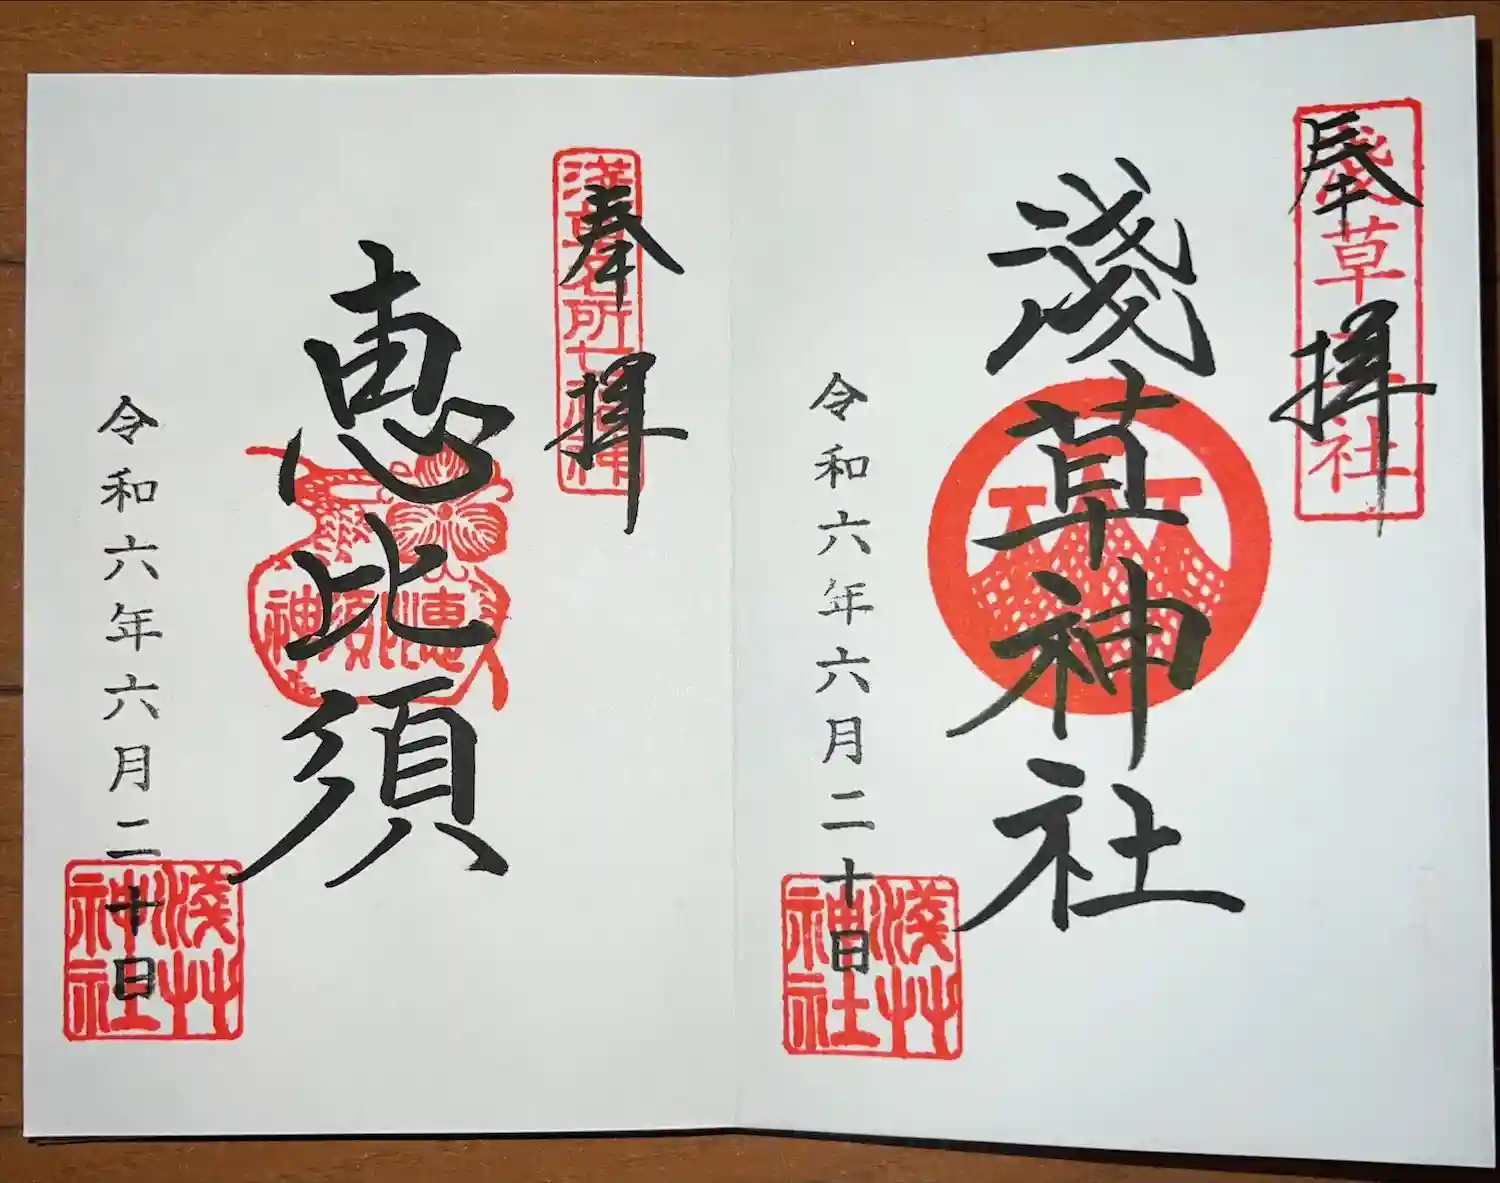 奉拝
淺草神社
淺草神社
令和六年六月二十日
淺艸神社
奉拝
浅草名所七福神
恵比須
恵比須神
令和六年六月二十日
淺艸神社